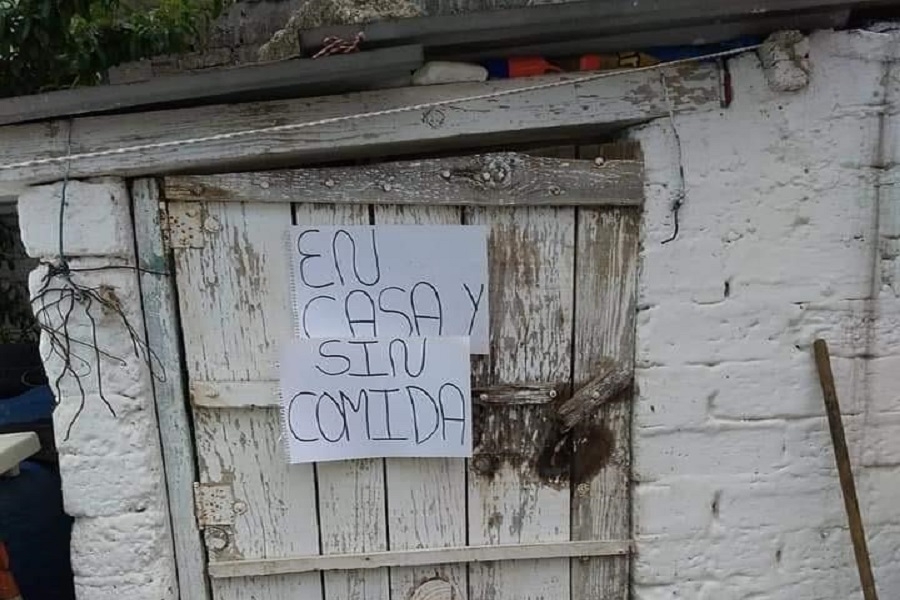 EN
CASA Y
SIN
COMIDA